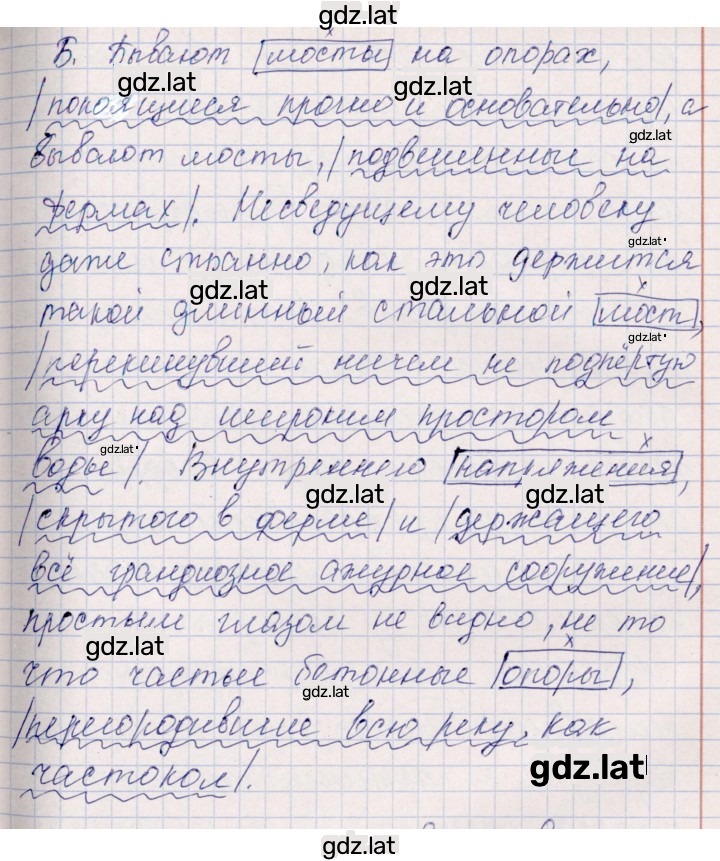 gdz.lat
Б. Бывают мосты на опорах,
gdz.lat
gdz.lat
покоящиеся прочно и основательно, а
gdz.lat
бывают мосты, подвешенные на
фермах. Несведущему человеку
gdz.lat
даже странно, как это держится
gdz.lat
gdz.lat
такой длинный стальной мост,
gdz.lat
перекинувший ничем не подпёртую
арку над широким простором
gdz.lat
воды. Внутреннего напряжения,
gdz.lat
gdz.lat
скрытого в ферме и держащего
всё грандиозное ажурное сооружение,
простым глазом не видно, не то
gdz.lat
что частые бетонные опоры,
gdz.lat
перегородившие всю реку, как
частокол.
gdz.lat
gdz.lat